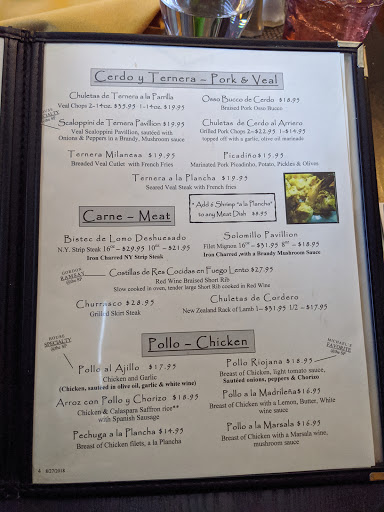 Cerdo y Ternera – Pork & Veal
Chuletas de Ternera a la Parrilla
Veal Chops 2-14oz. $35.95 1-14oz. $19.95
Osso Bucco de Cerdo $18.95
Braised Pork Osso Bucco
Scaloppini de Ternera Pavillion $19.95
Veal Scaloppini Pavillion, sautéed with
Onions & Peppers in a Brandy, Mushroom sauce
Chuletas de Cerdo al Arriero
Grilled Pork Chops 2–$22.95 1-$14.95
topped off with a garlic, olive oil marinade
Ternera Milanesa $19.95
Breaded Veal Cutlet with French Fries
Picadiño $15.95
Marinated Pork Picadinho, Potato, Pickles & Olives
Ternera a la Plancha $19.95
Seared Veal Steak with French fries
Carne – Meat
* Add 6 Shrimp "a la Plancha"
to any Meat Dish $8.95
Bistec de Lomo Deshuesado
N.Y. Strip Steak 16oz – $29.95 10oz – $21.95
Iron Charred NY Strip Steak
Solomillo Pavillion
Filet Mignon 16oz – $31.95 8oz – $18.95
Iron Charred ,with a Brandy Mushroom Sauce
GORDON
RAMSAY
Costillas de Res Cocidas en Fuego Lento $27.95
Red Wine Braised Short Rib
Slow cooked in oven, tender large Short Rib cooked in Red Wine
Churrasco $28.95
Grilled Skirt Steak
Chuletas de Cordero
New Zealand Rack of Lamb 1– $31.95 1/2 – $17.95
Pollo – Chicken
SPECIALTY
MICHAEL'S
FAVORITE
Pollo al Ajillo $17.95
Chicken and Garlic
(Chicken, sautéed in olive oil, garlic & white wine)
Pollo Riojana $18.95
Breast of Chicken, light tomato sauce,
Sautéed onions, peppers & Chorizo
Arroz con Pollo y Chorizo $18.95
Chicken & Calaspara Saffron rice**
with Spanish Sausage
Pollo a la Madrileña $16.95
Breast of Chicken with a Lemon, Butter, White
wine sauce
Pechuga a la Plancha $14.95
Breast of Chicken filets, a la Plancha
Pollo a la Marsala $16.95
Breast of Chicken with a Marsala wine,
mushroom sauce